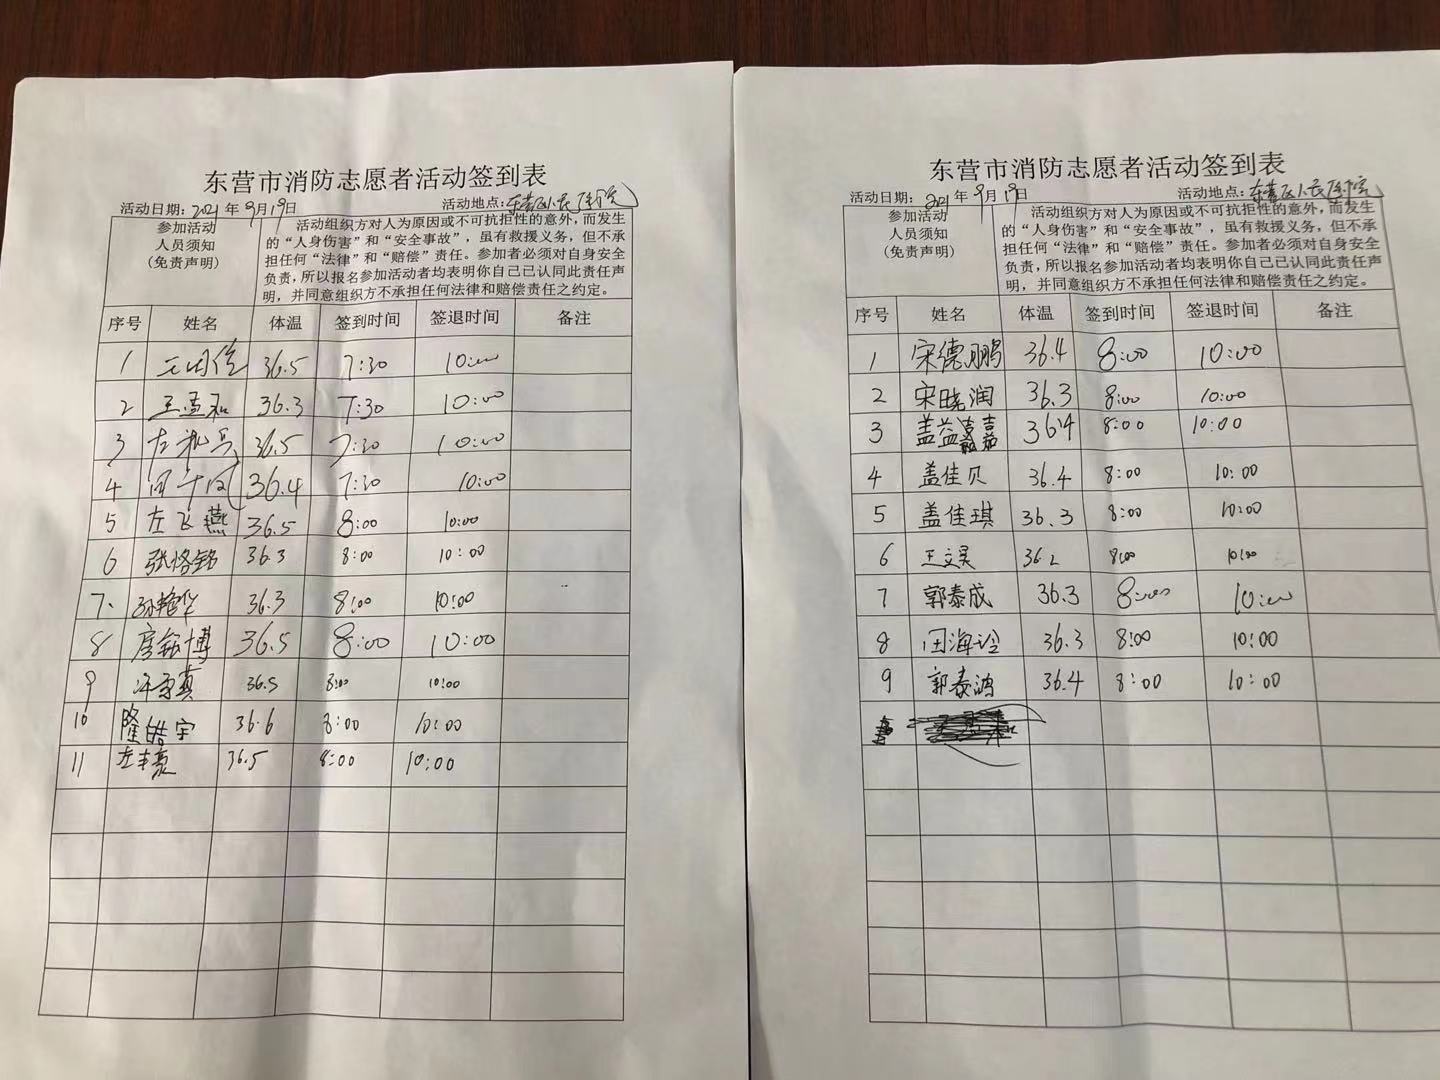 东营市消防志愿者活动签到表
活动日期：2021年9月19日 活动地点：东营区人民医院
参加活动
人员须知
（免责声明）
活动组织方对人为原因或不可抗拒性的意外，而发生
的“人身伤害”和“安全事故”，虽有救援义务，但不承
担任何“法律”和“赔偿”责任。参加者必须对自身安全
负责，所以报名参加活动者均表明你自己已认同此责任声
明，并同意组织方不承担任何法律和赔偿责任之约定。
序号 姓名 体温 签到时间 签退时间 备注
1 36.5 7:30 10:00
2 王孟和 36.3 7:30 10:00
3 36.5 7:30 10:00
4 36.4 7:30 10:00
5 左飞燕 36.5 8:00 10:00
6 张恪铭 36.3 8:00 10:00
7. 36.3 8:00 10:00
8 36.5 8:00 10:00
9 36.5 8:00 10:00
10 隆皓宇 36.6 8:00 10:00
11 36.5 8:00 10:00
东营市消防志愿者活动签到表
活动日期：2021年9月19日 活动地点：东营区人民医院
参加活动
人员须知
（免责声明）
活动组织方对人为原因或不可抗拒性的意外，而发生
的“人身伤害”和“安全事故”，虽有救援义务，但不承
担任何“法律”和“赔偿”责任。参加者必须对自身安全
负责，所以报名参加活动者均表明你自己已认同此责任声
明，并同意组织方不承担任何法律和赔偿责任之约定。
序号 姓名 体温 签到时间 签退时间 备注
1 宋德鹏 36.4 8:00 10:00
2 宋晓润 36.3 8:00 10:00
3 盖益嘉 36.4 8:00 10:00
4 盖佳贝 36.4 8:00 10:00
5 盖佳琪 36.3 8:00 10:00
6 王文昊 36.2 8:00 10:00
7 郭泰成 36.3 8:00 10:00
8 田海玲 36.3 8:00 10:00
9 郭泰鸿 36.4 8:00 10:00